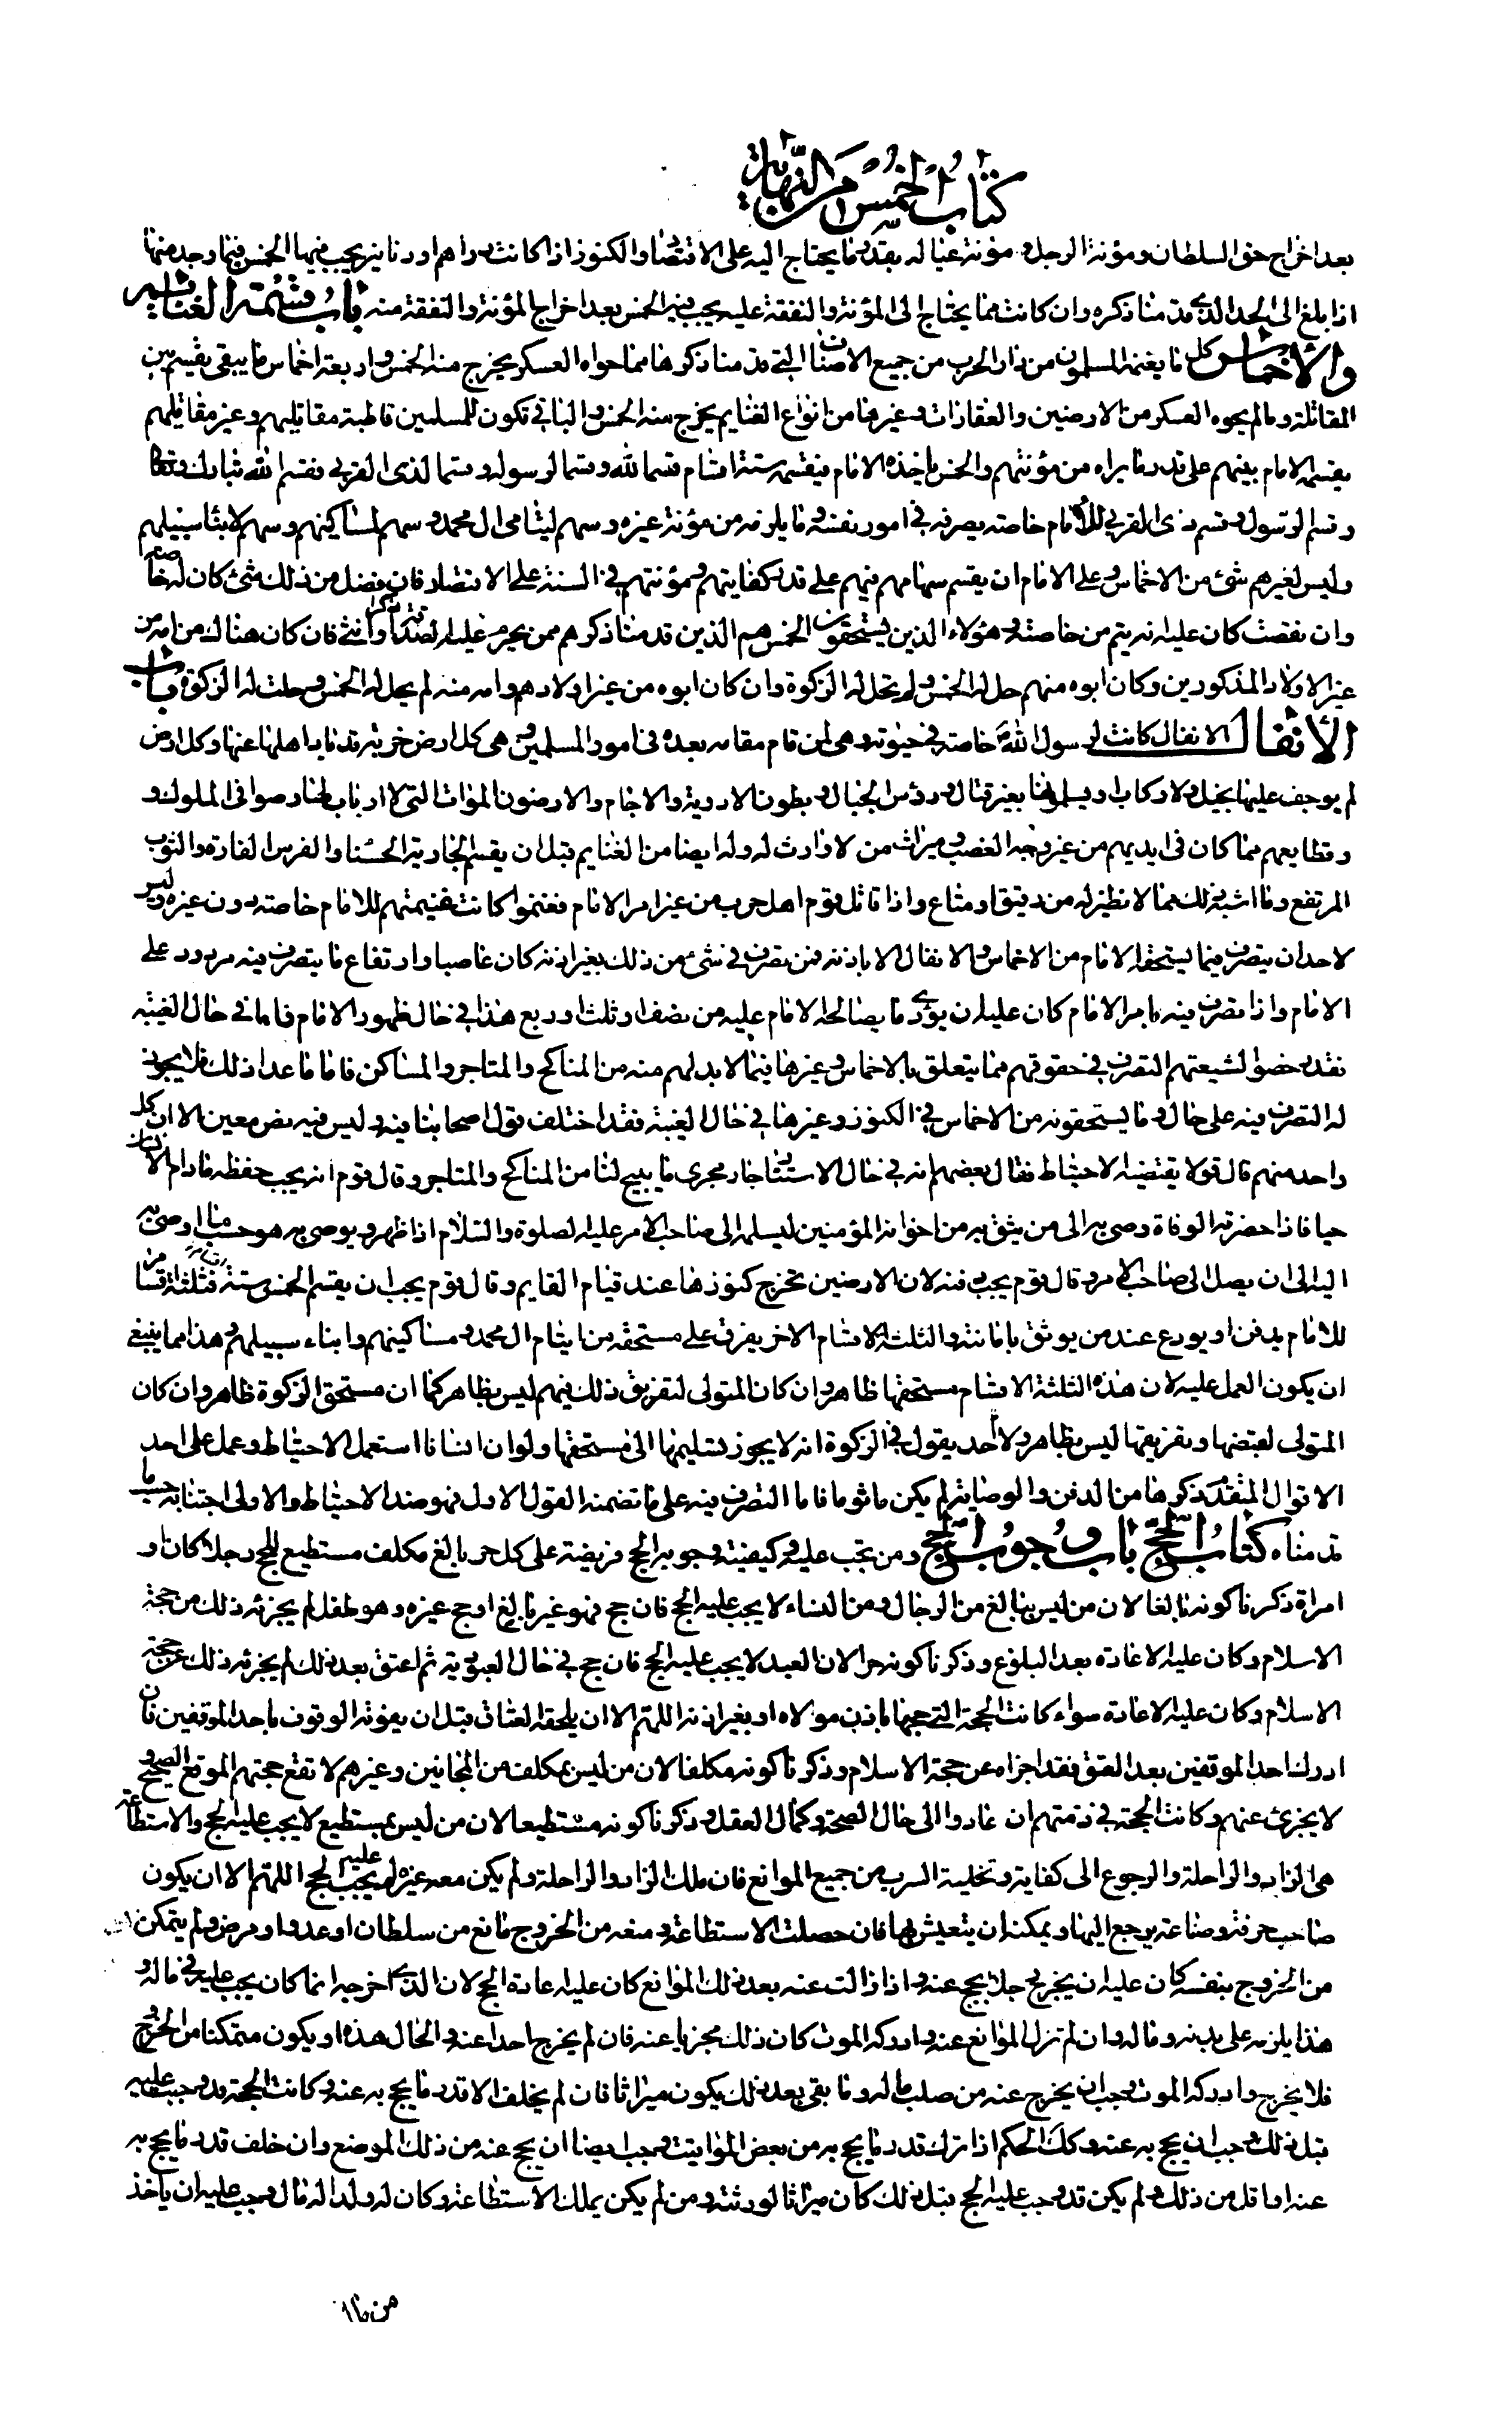 كتاب الخمس من النهاية
بعد اخراج حق السلطان ومؤنة الرجل و مؤنة عياله بقدر ما يحتاج اليه على الاقتصاد والكنوز اذا كانت دراهم او دنانير يجب فيها الخمس فيما وجد منها
اذا بلغ الى الحد الذي قدمنا ذكره وان كانت مما يحتاج الى المؤنة والنفقة عليه يجب فيه الخمس بعد اخراج المؤنة والنفقة منه باب قسمة الغنايم
والاخماس كل ما يغنمه المسلمون من دار الحرب من جميع الاصناف التي قدمنا ذكرها مما حواه العسكر يخرج منه الخمس و اربعة اخماس ما يبقى يقسم بين
المقاتلة وما لم يحوه العسكر من الارضين والعقارات و غيرها من انواع الغنايم يخرج منه الخمس والباقي تكون للمسلمين قاطبة مقاتليهم و غير مقاتليهم
يقسمه الامام بينهم على قدر ما يراه من مؤنتهم والخمس ياخذه الامام فيقسمه ستة اقسام قسما لله وقسما لرسوله وقسما لذى القربى فقسم الله تبارك وتعالى
وقسم الرسول و قسم ذى القربى للامام خاصة يصرفه في امور نفسه وما يلزمه من مؤنة غيره وسهم ليتامى ال محمد و سهم لمساكينهم وسهم لابناء سبيلهم
وليس لغيرهم شئ من الاخماس وعلى الامام ان يقسم سهامهم فيهم على قدر كفايتهم و مؤنتهم في السنة على الاقتصاد فان فضل من ذلك شئ كان له خاصة
وان نقصت كان عليه ان يتم من خاصته و هؤلاء الذين يستحقون الخمس هم الذين قدمنا ذكرهم ممن يحرم عليه الصدقة ذكرا وانثى فان كان هناك من امه من
غير اولاد المذكورين وكان ابوه منهم حل له الخمس ولم تحل له الزكوة وان كان ابوه من غير اولادهم وامه منه لم يحل له الخمس و حلت له الزكوة باب
الانفال الانفال كانت لرسول الله ص خاصة في حيوته وهى لمن قام مقامه بعده فى امور المسلمين وهى كل ارض خربة قد باد اهلها عنها وكل ارض
لم يوجف عليها بخيل ولا ركاب او يسلمونها بغير قتال ورؤس الجبال و بطون الاودية والاجام والارضون الموات التى لا ارباب لها وصوافى الملوك و
وقطايعهم مما كان فى ايديهم من غير وجه الغصب وميراث من لا وارث له وله ايضا من الغنايم قبل ان يقسم الجارية الحسنا والفرس الفارة والثوب
المرتفع وما اشبه ذلك مما لا نظير له من رقيق او متاع واذا قاتل قوم اهل حرب من غير امر الامام فغنموا كانت غنيمتهم للامام خاصة دون غيره وليس
لاحد ان يتصرف فيما يستحقه الامام من الاخماس والانفال الا باذنه فمن تصرف فى شئ من ذلك بغير اذنه كان غاصبا وارتفاع ما يتصرف فيه مردود على
الامام واذا تصرف فيه بامر الامام كان عليه ان يؤدى ما يصالحه الامام عليه من نصف او ثلث او ربع هذا في حال ظهور الامام فاما فى حال الغيبة
فقد رخصوا لشيعتهم التصرف في حقوقهم مما يتعلق بالاخماس و غيرها فيما لا بد لهم منه من المناكح والمتاجر والمساكن فاما ما عدا ذلك فلا يجوز
له التصرف فيه على حال و ما يستحقونه من الاخماس في الكنوز وغيرها في حال الغيبة فقد اختلف قول اصحابنا فيه وليس فيه نص معين الا ان كل
واحد منهم قال قولا يقتضيه الاحتياط فقال بعضهم انه في حال الاستتار جار مجرى ما ابيح لنا من المناكح والمتاجر وقال قوم انه يجب حفظه ما دام الانسان
حيا فاذا حضرته الوفاة وصى به الى من يثق به من اخوانه المؤمنين ليسلمه الى صاحب الامر عليه الصلوة والسلام اذا ظهر و يوصى به هو حسب ما اوصى به
اليه الى ان يصل الى صاحب الامر وقال قوم يجب دفنه لان الارضين تخرج كنوزها عند قيام القايم وقال قوم يجب ان يقسم الخمس ستة فثلثة اقسام
للامام يدفن او يودع عند من يوثق بامانته والثلثة الاقسام الاخر يفرق على مستحقه من ايتام ال محمد و مساكينهم وابناء سبيلهم و هذا مما ينبغى
ان يكون العمل عليه لان هذه الثلثة الاقسام مستحقها ظاهر وان كان المتولى لتفريق ذلك فيهم ليس بظاهر كما ان مستحق الزكوة ظاهر وان كان
المتولى لقبضها وتفريقها ليس بظاهر ولا احد يقول في الزكوة انه لا يجوز تسليمها الى مستحقها ولو ان انسانا استعمل الاحتياط وعمل على احد
الاقوال المتقدم ذكرها من الدفن والوصاية لم يكن ماثوما فاما التصرف فيه على ما تضمنه القول الاول فهو ضد الاحتياط والاولى اجتنابه حسب ما
قدمناه كتاب الحج باب وجوب الحج ومن تجب عليه وكيفية وجوبه الحج فريضة على كل حر بالغ مكلف مستطيع للحج رجلا كان او
امراة ذكرنا كونه بالغا لان من ليس ببالغ من الرجال و من النساء لا يجب عليه الحج فان حج فهو غير بالغ او حج غيره وهو طفل لم يجزئه ذلك من حجة
الاسلام وكان عليه الاعادة بعد البلوغ وذكرنا كونه حرا لان العبد لا يجب عليه الحج فان حج في حال العبودية ثم اعتق بعد ذلك لم يجزئه ذلك عن حجة
الاسلام وكان عليه الاعادة سواء كانت الحجة التى حجها باذن مولاه او بغير اذنه اللهم الا ان يلحقه العتاق قبل ان يفوته الوقوف باحد الموقفين فان
ادرك احد الموقفين بعد العتق فقد اجزاه عن حجة الاسلام وذكرنا كونه مكلفا لان من ليس بمكلف من المجانين وغيرهم لا تقع حجتهم الموقع الصحيح و
لا يجزئ عنهم وكانت الحجة في ذمتهم ان عادوا الى حال الصحة وكمال العقل و ذكرنا كونه مستطيعا لان من ليس بمستطيع لا يجب عليه الحج والاستطاعة
هى الزاد والراحلة والرجوع الى كفاية وتخلية السرب من جميع الموانع فان ملك الزاد والراحلة ولم يكن معه غيره لم يجب عليه الحج اللهم الا ان يكون
صاحب حرفة وصناعة يرجع اليها ويمكنه ان يتعيش بها فان حصلت الاستطاعة و منعه من الخروج مانع من سلطان او عدو او مرض ولم يتمكن
من الخروج بنفسه كان عليه ان يخرج رجلا يحج عنه واذا زالت عنه بعد ذلك الموانع كان عليه اعادة الحج لان الذى اخرجه انما كان يجب عليه فى ماله و
هذا يلزمه على بدنه وماله وان لم تزل الموانع عنه وادركه الموت كان ذلك مجزيا عنه فان لم يخرج احدا عنه والحال هذه او يكون متمكنا من الخروج و
فلا يخرج وادركه الموت وجب ان يخرج عنه من صلب ماله وما بقى بعد ذلك يكون ميراثا فان لم يخلف الا قدر ما يحج به عنه و كانت الحجة قد وجبت عليه
قبل ذلك وجب ان يحج به عنه وكذلك الحكم اذا ترك قدر ما يحج به من بعض المواقيت وجب ايضا ان يحج عنه من ذلك الموضع وان خلف قدر ما يحج به
عنه او اقل من ذلك ولم يكن قد وجب عليه الحج قبل ذلك كان ميراثا لورثته ومن لم يكن يملك الاستطاعة وكان له ولد له مال وجب عليه ان ياخذ
من مال